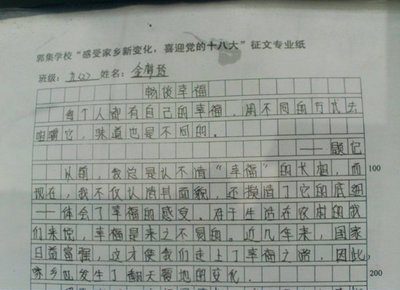 郭集学校“感受家乡新变化,喜迎党的十八大”征文专业纸
班级: 九(2) 姓名: 金
畅谈幸福
每个人都有自己的幸福,用不同的方式去
咀嚼它,味道也是不同的。
——题记
从前,我总是认不清“幸福”的长相,而 100
现在,我不仅认清其面貌,还摸清了它的底细
——体会了幸福的感受。在于生活在农村的我
们来说,幸福是来之不易的。近几年来,国家
日益富强,这才使我们走上了幸福之路,因此,
家乡也发生了翻天覆地的变化。 200